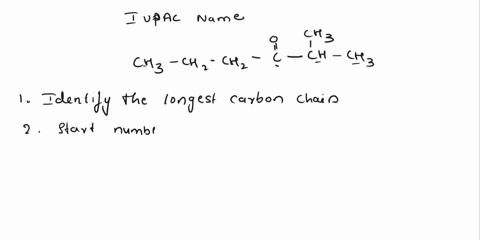 IUPAC Name
O CH3
CH3 - CH2 - CH2 - C - CH - CH3
1. Identify the longest carbon chain
2. Start numb